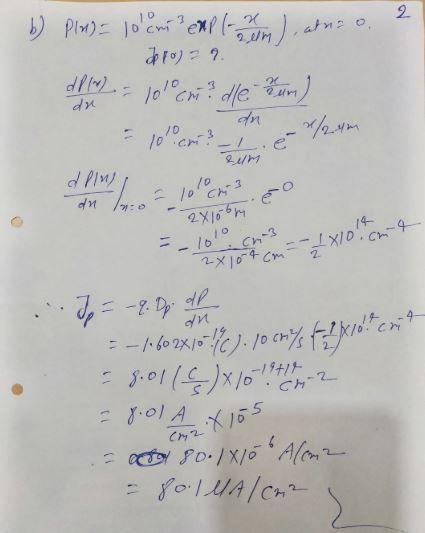 2
b) P(x) = 10^10 cm^-3 exp(-x/2μm), at x = 0.
Jp(0) = ?
dP(x)/dx = 10^10 cm^-3 . d(e^-x/2μm)/dx
= 10^10 . cm^-3 . -1/2μm . e^-x/2μm
dP(x)/dx |x=0 = -10^10 cm^-3/2×10^-6 m . e^-0
= -10^10 . cm^-3/2×10^-4 cm = -1/2 × 10^14 . cm^-4
∴ Jp = -q.Dp. dP/dx
= -1.602×10^-19 (C) . 10 cm²/s (-1/2)×10^14 . cm^-4
= 8.01 (C/s) × 10^-19+14 . cm^-2
= 8.01 A/cm² . × 10^-5
= 80.1×10^-6 A/cm²
= 80.1 μA/cm²